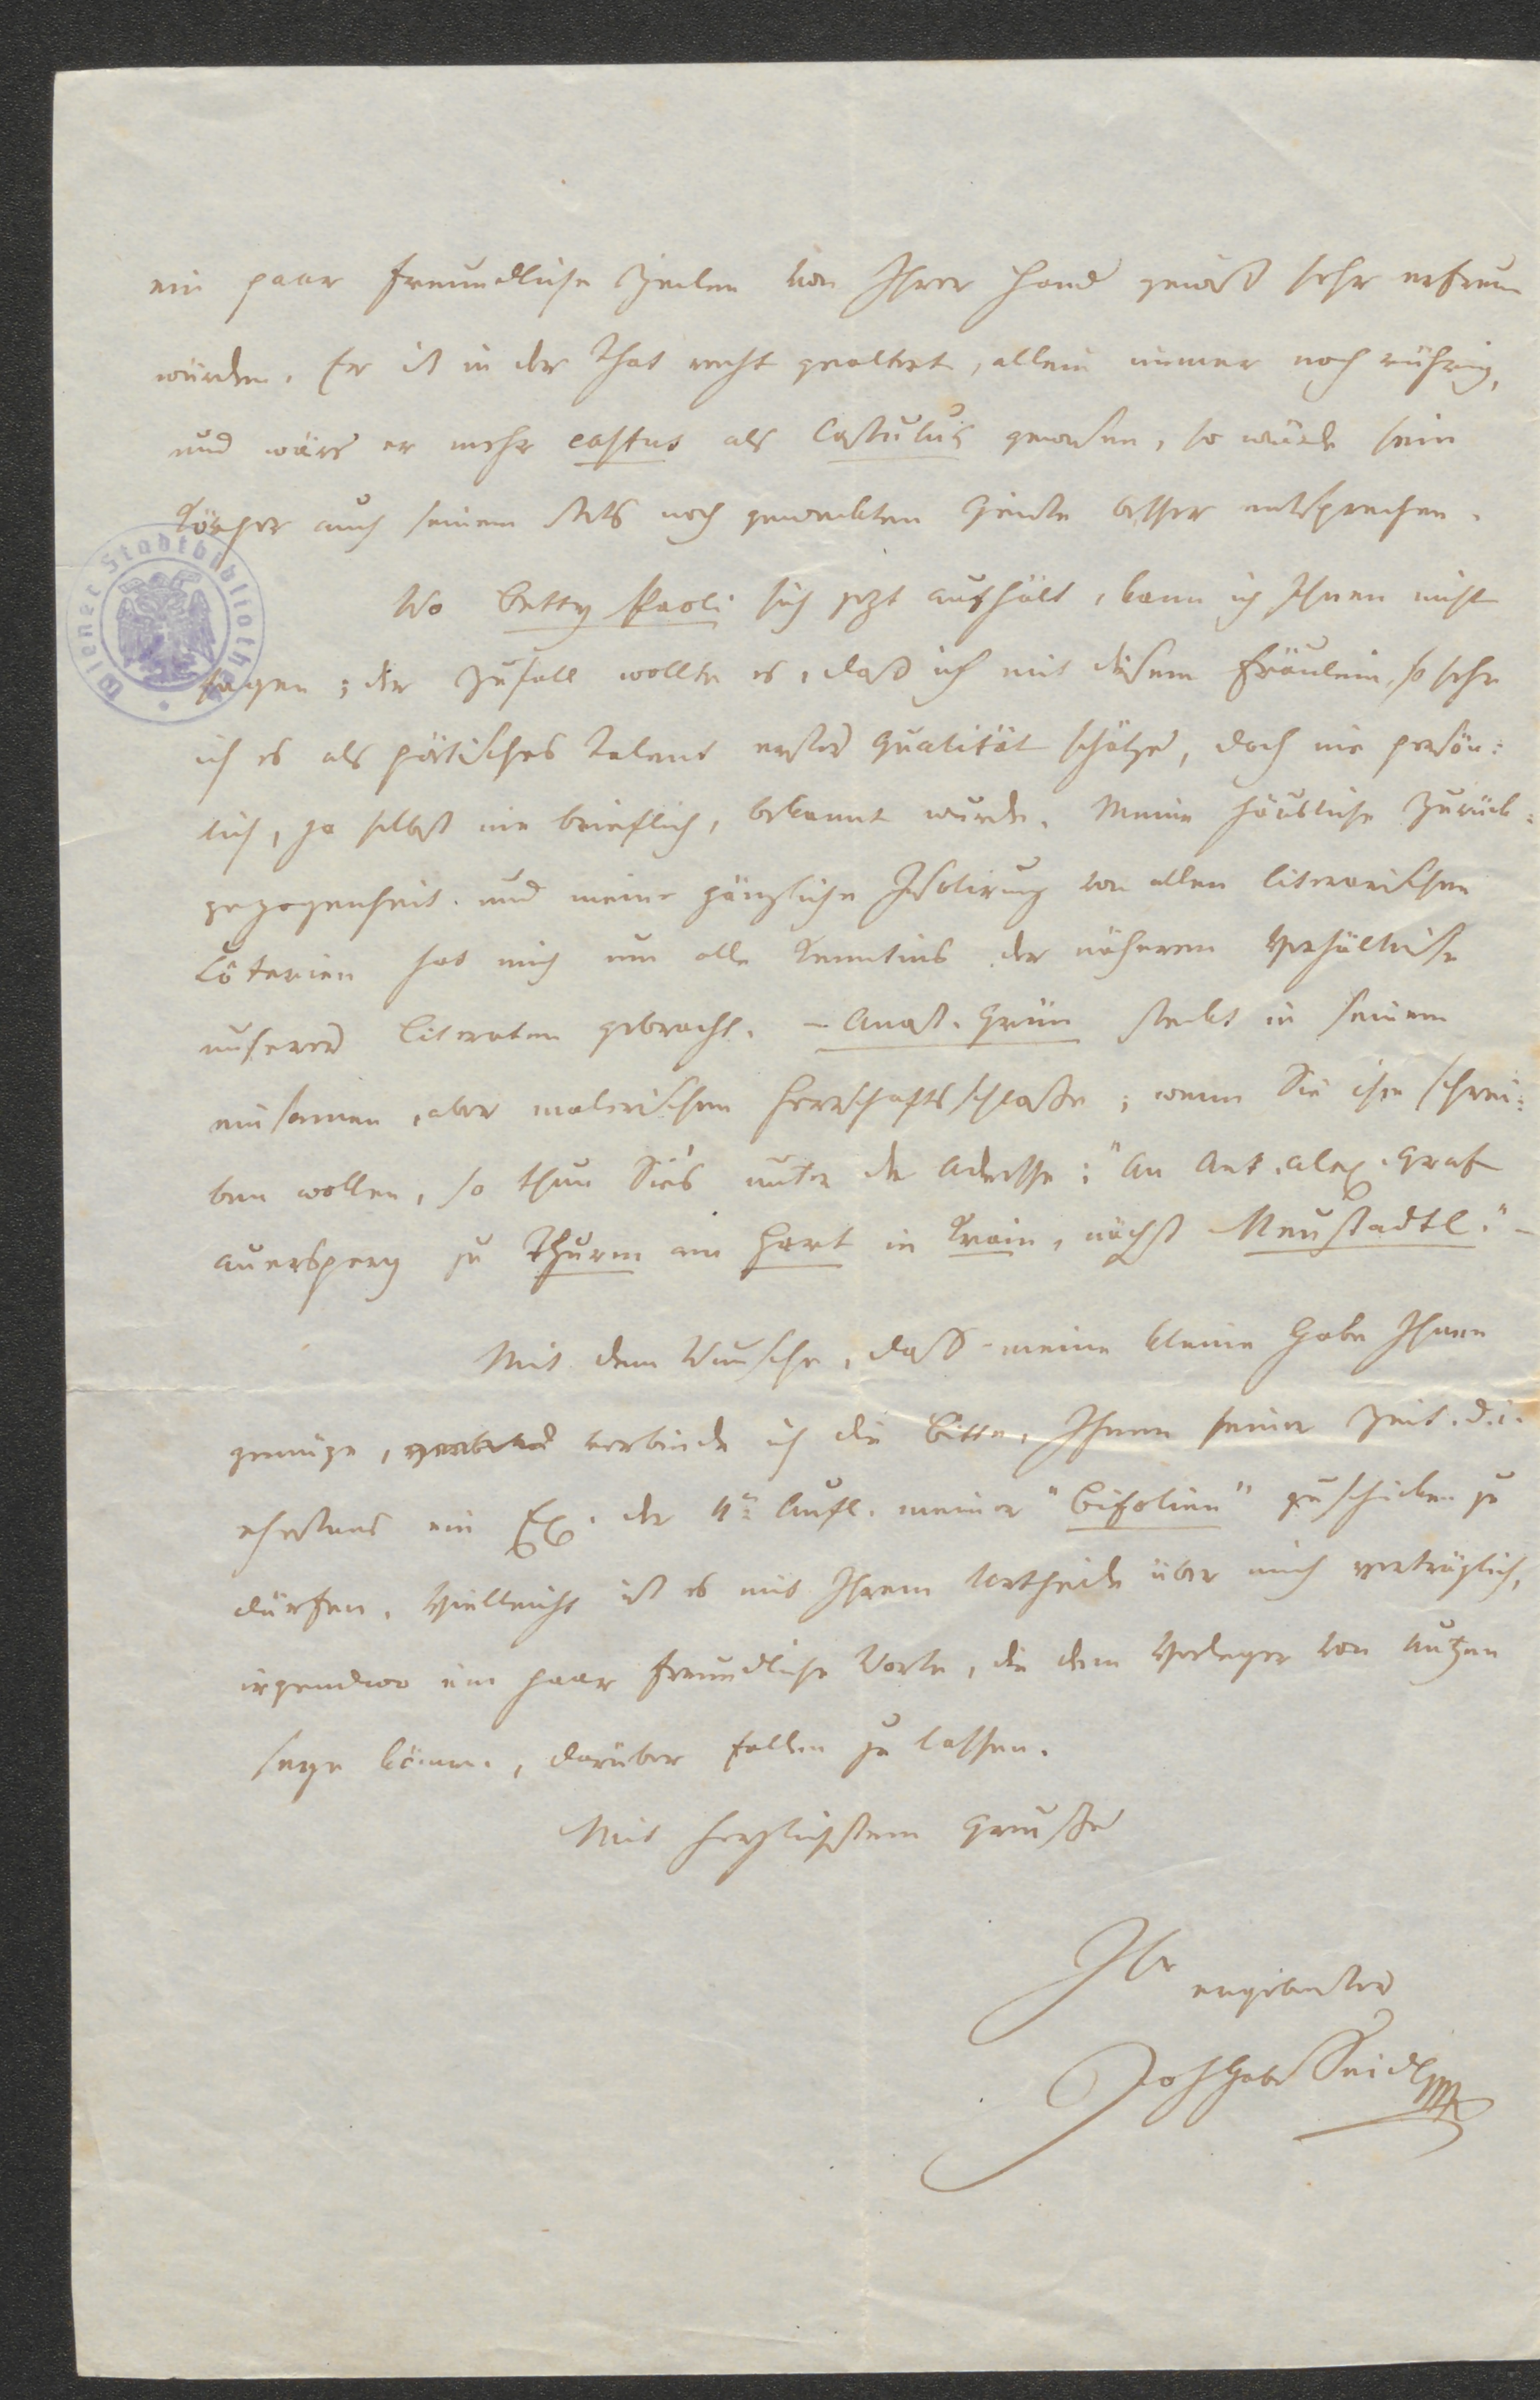 ein paar freundliche Zeilen von Ihrer Hand gewiß sehr erfreuen
würden. Er ist in der That recht gealtert, allein immer noch rührig,
und wäre er mehr castus als Castulus gewesen, so würde sein
Körper auch seinem stets noch geweckten Geiste besser entsprechen.
Wo Betty Paoli sich jezt aufhält, kann ich Ihnen nicht
sagen; der Zufall wollte es, daß ich mit diesem Fräulein, so sehr
ich es als poëtisches Talent erster Qualität schätze, doch nie persön:
lich, ja selbst nie brieflich, bekannt wurde. Meine häusliche Zurück:
gezogenheit und meine gänzliche Isolirung von allen literarischen
Côterien hat mich um alle Kenntnis der näheren Verhältnisse
unserer Literaten gebracht. – Anast. Grün steckt in seinem
einsamen, aber malerischen Herrschaftsschlosse; wenn Sie ihm schrei:
ben wollen, so thun Sie's unter der Adresse: "An Ant. Alex. Graf
Auersperg zu Thurm am Hart in Krain, nächst Neustadtl." –
Mit dem Wunsche, daß meine kleine Gabe Ihnen
genüge, verbinde ich die Bitte, Ihnen seiner Zeit d. i.
ehestens ein Ex. der 4n Aufl. meiner "Bifolien" zuschicken zu
dürfen. Vielleicht ist es mit Ihrem Urtheile über mich verträglich,
irgendwo ein paar freundliche Worte, die dem Verleger von Nutzen
seyn könn., darüber fallen zu lassen.
Mit herzlichstem Gruße
Ihr
ergebenster
Joh Gab Seidl
Wiener Stadtbibliothek